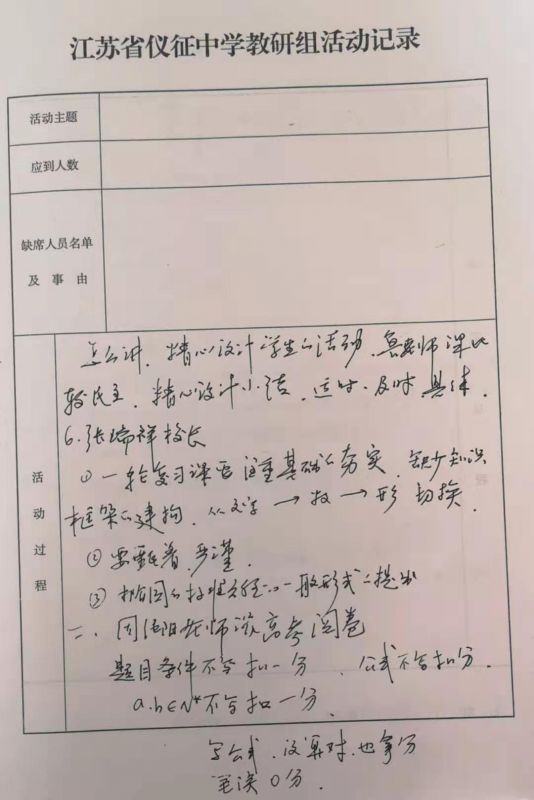 江苏省仪征中学教研组活动记录
活动主题
应到人数
缺席人员名单
及事由
活动过程
怎么讲，精心设计学生的活动，老师课比
较民主，精心设计小结，适时、及时、具体．
6.张瑞祥校长
① 一轮复习课要注重基础的夯实，缺少知识
框架的建构，从文字 → 数 → 形 切换．
② 要严谨．
③ 椭圆的 一般形式的提出
二、周 老师谈高考阅卷
题目条件不写扣一分，公式不写扣分．
a.b∈N*不写扣一分
写公式，没算对，也拿分
笔误0分．